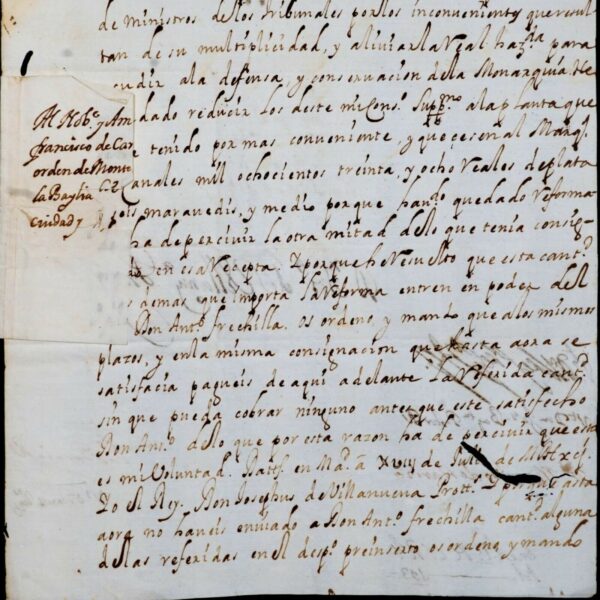 de ministros de los tribunales por los inconvenientes que resul-
tan de su multiplicidad, y aliviar la Real haz.da para
acudir ala defensa, y conservacion dela Monarquia. He
dado reducir los deste mi Cons.º Sup.mo ala planta que
e tenido por mas conveniente, y que cesen al Marq.s
Canales mil ochocientos treinta, y ocho Reales de plata
eis maravedis, y medio porque han.lo quedado reforma-
ha de percivir la otra mitad delo que tenia consig-
en esa Recepta. Y porque he Resuelto que esta cant.d
s demas que importa la reforma entren en poder del
Don Ant.º frechilla. Os ordeno, y mando que alos mismos
plazos, y en la misma consignacion que hasta aora se
satisfacia pagueis de aqui adelante la referida cant.d
sin que pueda cobrar ninguno antes que este satisfecho
Don Ant.º delo que por esta razon ha de percivir que esta
es mi Voluntad. Datt. en Ma.d a XViij de Jull.º de
Yo el Rey. Don Josephus de Villanueva Prott.s Y porque asta
aora no haveis enviado a Don Ant.º frechilla cant.d alguna
delas referidas en el desp.º preinserto os ordeno, y mando
Al Nob.e y Am
francisco de Car
orden de Monte
la Baylia
ciudad